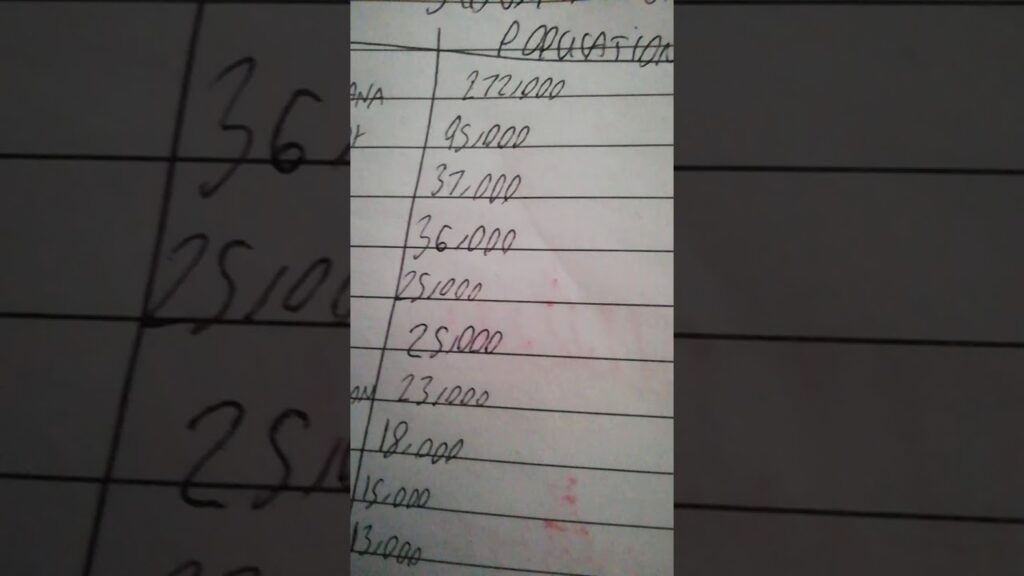 POPULATION
ANA 272,000
95,000
37,000
36,000
25,000
25,000
ON 23,000
18,000
15,000
13,000